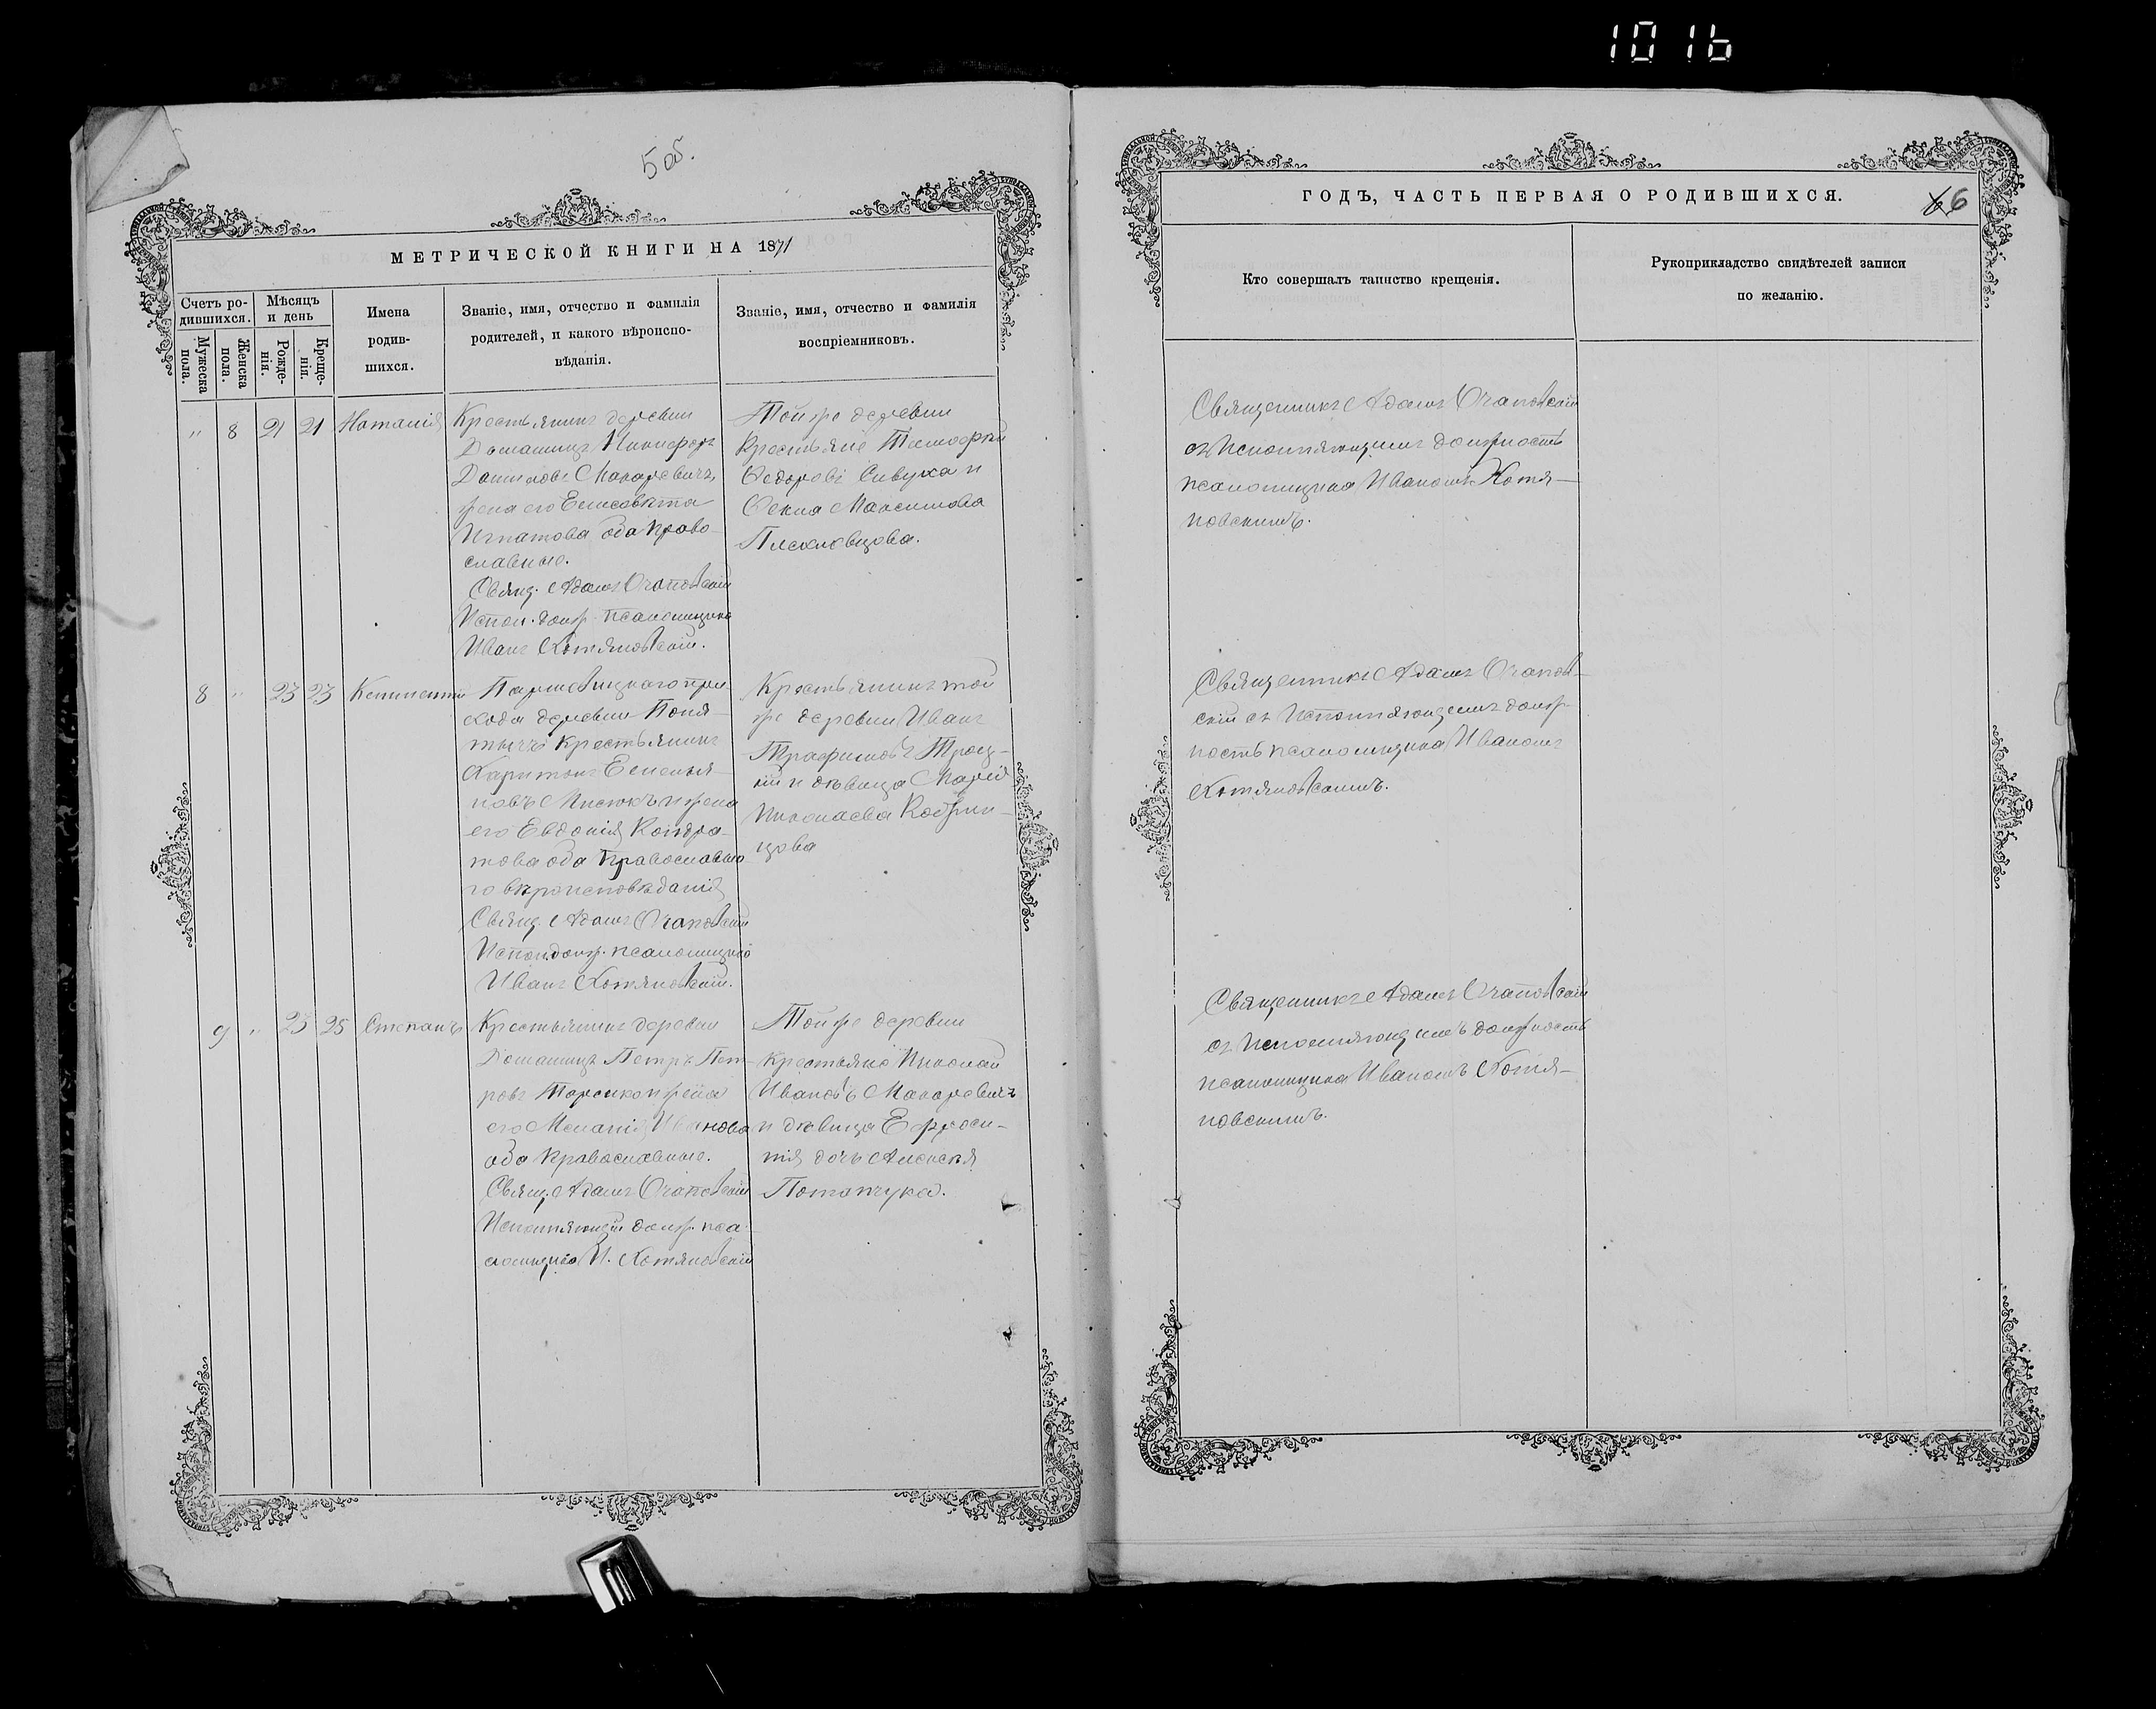 1016
5 об.
МЕТРИЧЕСКОЙ КНИГИ НА 1871
Счетъ ро-
дившихся.
Мужеска
пола.
Женска
пола.
Мѣсяцъ
и день
Рожде-
нія.
Креще-
нія.
Имена
родив-
шихся.
Званіе, имя, отчество и фамилія
родителей, и какого вѣроиспо-
вѣданія.
Званіе, имя, отчество и фамилія
воспріемниковъ.
" 8 21 21 Наталія
Крестьянинъ деревни
Домашицъ Никифоръ
Даниловъ Макаревичъ,
жена его Елисавета
Игнатова оба право-
славные.
Свящ. Адамъ
Испол. долж. псаломщика
Иванъ Котяновскій.
Той же деревни
Крестьяне Тимофей
Федоровъ Сивуха и
Фекла Максимова
8 " 23 23 Климентій
при[-]
хода деревни
Крестьянинъ
Харитонъ Емелья-
новъ Мисюкъ и жена
его Евдокія Кондра-
това оба православна-
го вѣроисповѣданія
Свящ. Адамъ
Испол. долж. псаломщика
Иванъ Котяновскій.
Крестьянинъ той
же деревни Иванъ
Трофимовъ Троц-
кій и дѣвица Марія
Николаева Кобрин-
цова
9 " 25 25 Степанъ
Крестьянинъ деревни
Домашицъ Петръ Пет-
ровъ и жена
его Меланія Иванова
оба православные.
Свящ. Адамъ
Исполняющій долж. пса-
ломщика И. Котяновскій
Той же деревни
крестьяне Николай
Ивановъ Макаревичъ
и дѣвица Ефроси-
нія дочь Алексѣя
Потапчука.
ГОДЪ, ЧАСТЬ ПЕРВАЯ О РОДИВШИХСЯ.
6
Кто совершалъ таинство крещенія.
Рукоприкладство свидѣтелей записи
по желанію.
Священникъ Адамъ
съ Исполняющимъ должность
псаломщика Иваномъ Котя-
новскимъ.
Священникъ Адамъ
съ Исполняющимъ долж-
ность псаломщика Иваномъ
Котяновскимъ.
Священникъ Адамъ
съ Исполняющимъ должность
псаломщика Иваномъ Котя-
новскимъ.